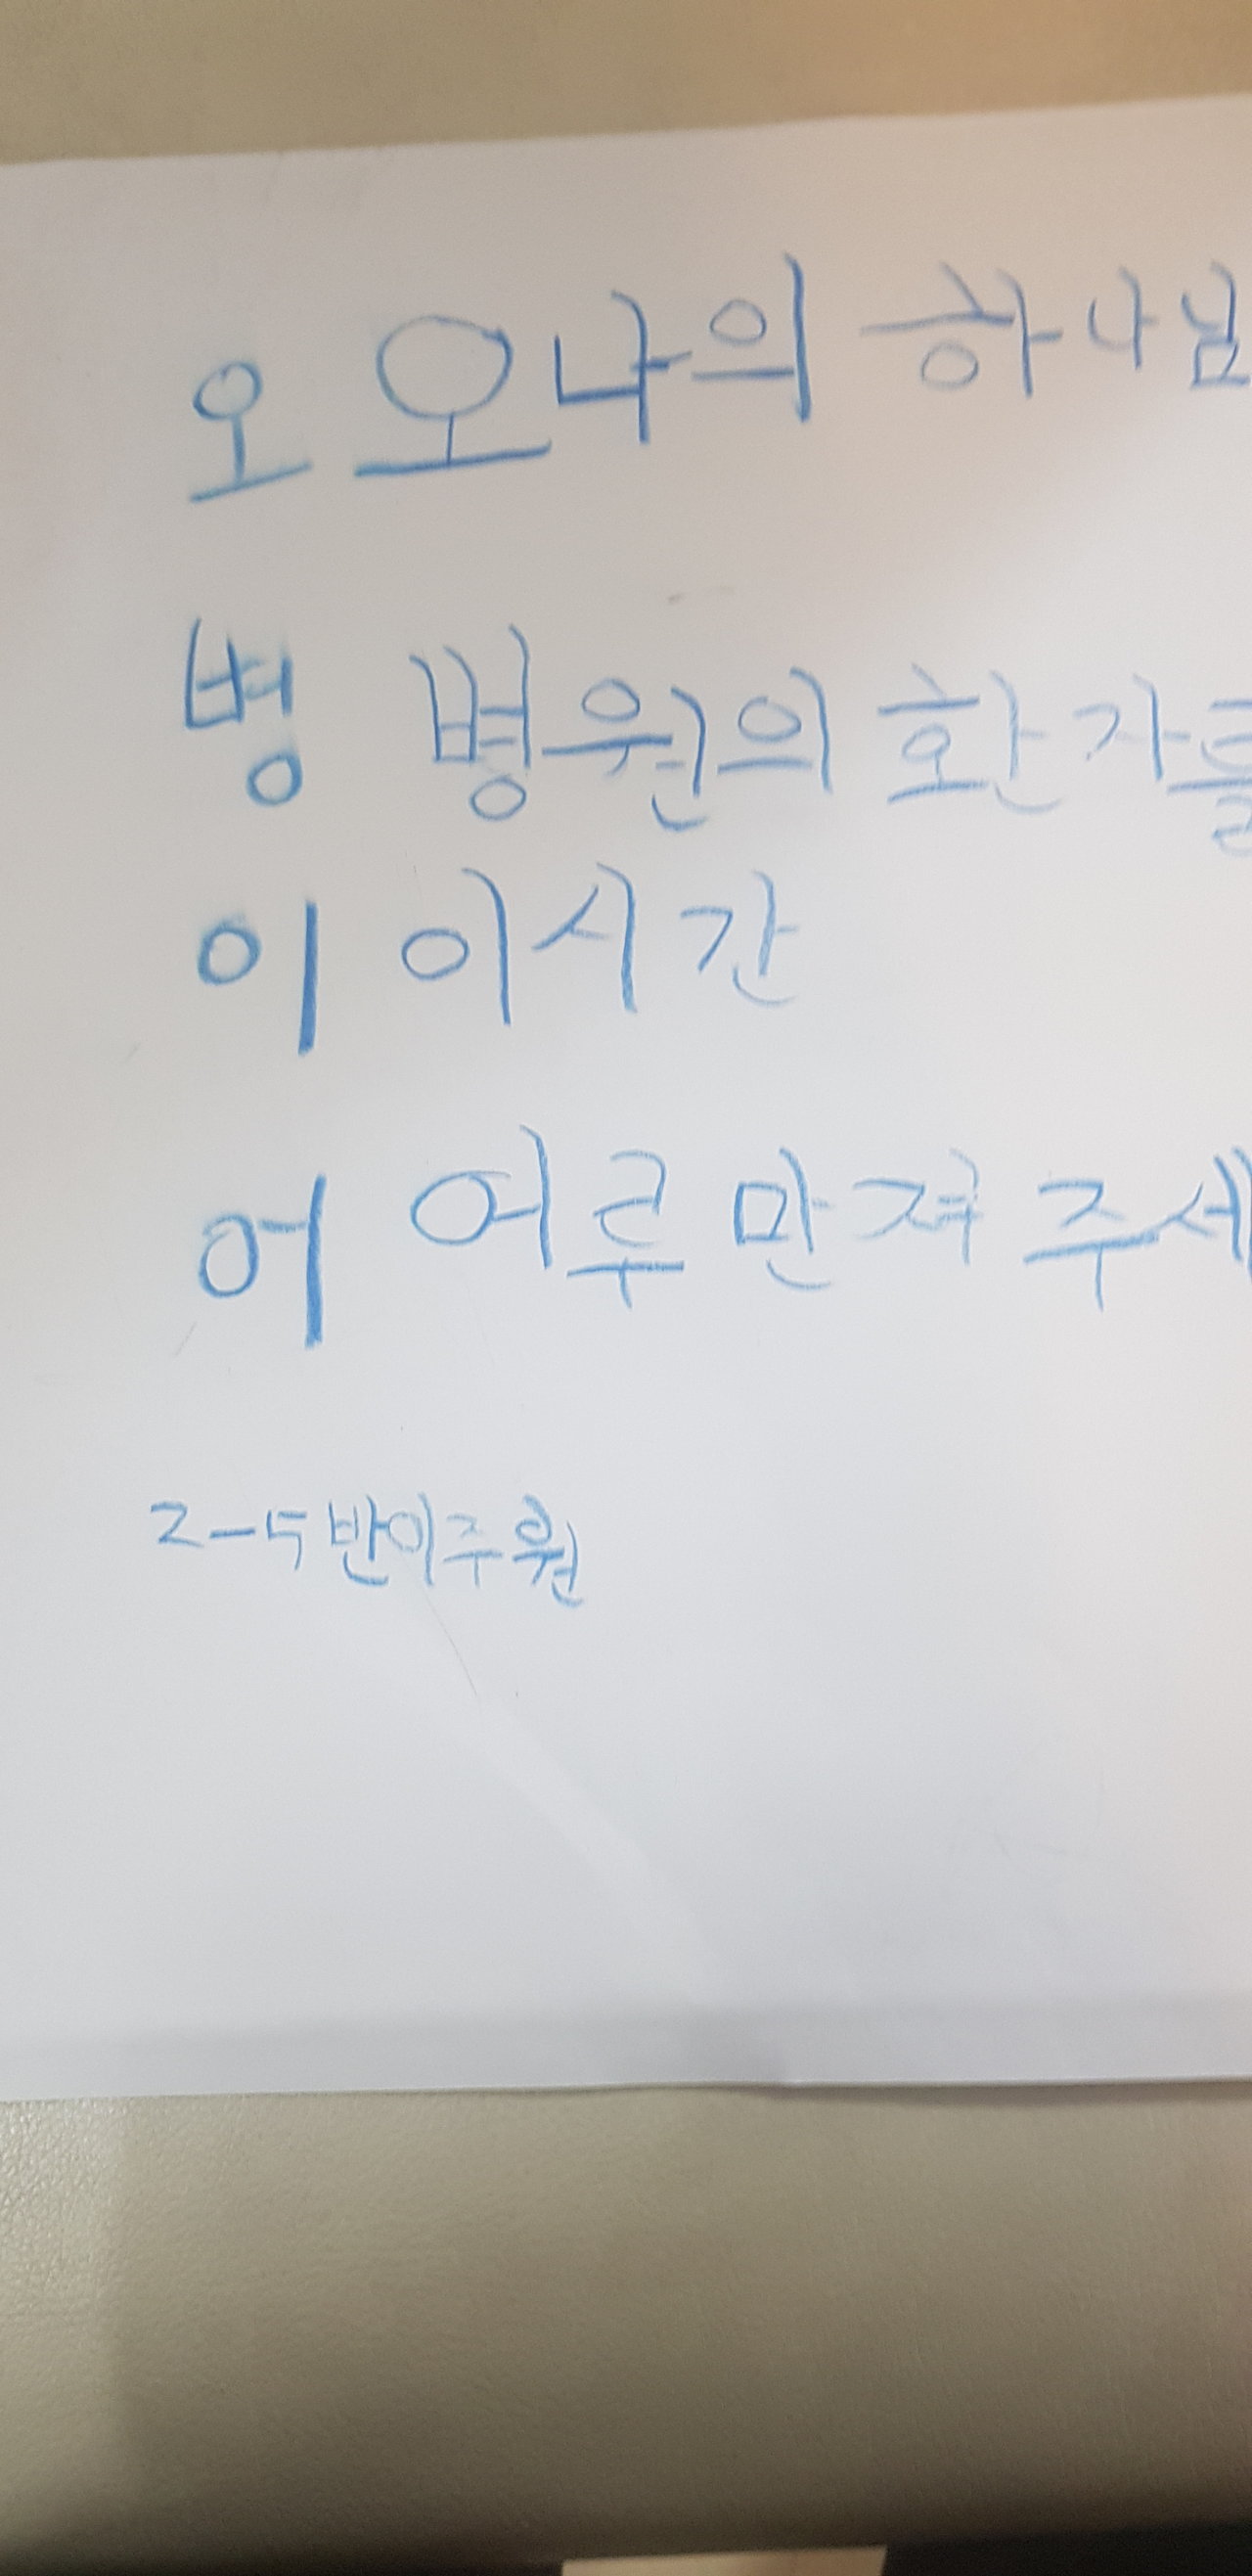 오 오나의 하나님
병 병원의 환자를
이 이시간
어 어루만져 주세
2-5반이주원